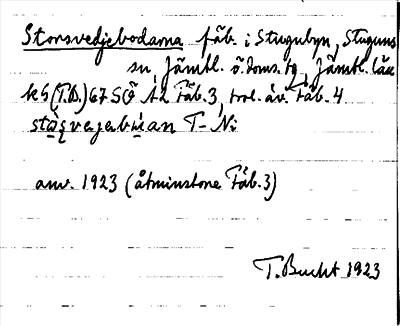 Storsvedjebodarna fäb. i Stugubyn, Stuguns
sn, Jämtl. ö. doms. tg, Jämtl. län
k5 (T.D.) 67 SÖ 12 Fäb. 3, trol. äv. Fäb. 4
T-Ni
anv. 1923 (åtminstone Fäb. 3)
T. Bucht 1923